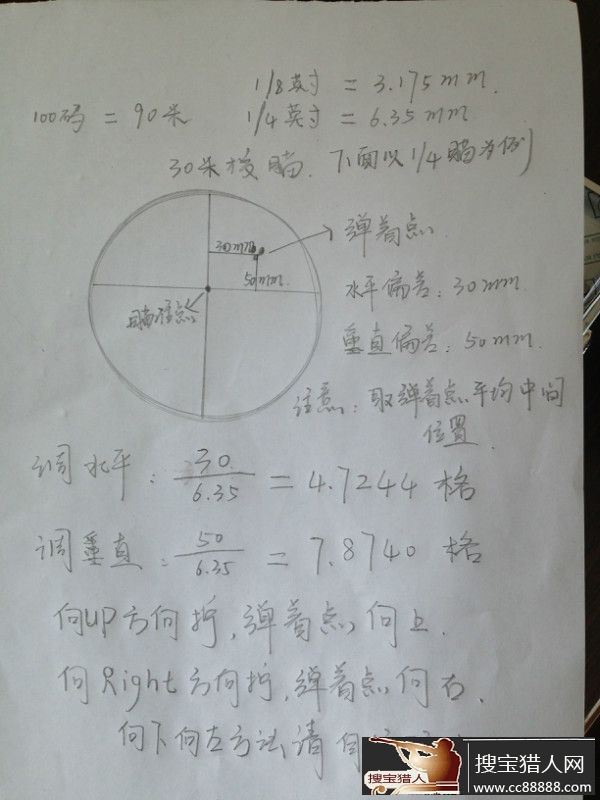 1/8英寸 = 3.175mm.
100码 = 90米 1/4英寸 = 6.35mm
30米校瞄. 下面以1/4瞄为例
30mm
弹着点.
50mm.
瞄准点
水平偏差: 30mm
垂直偏差: 50mm.
注意: 取弹着点平均中间
位置
调水平: 30/6.35 = 4.7244 格
调垂直: 50/6.35 = 7.8740 格
向UP方向拧, 弹着点向上.
向Right方向拧, 弹着点向右.
向下向左方法请
搜宝猎人
搜宝猎人网
www.cc88888.com